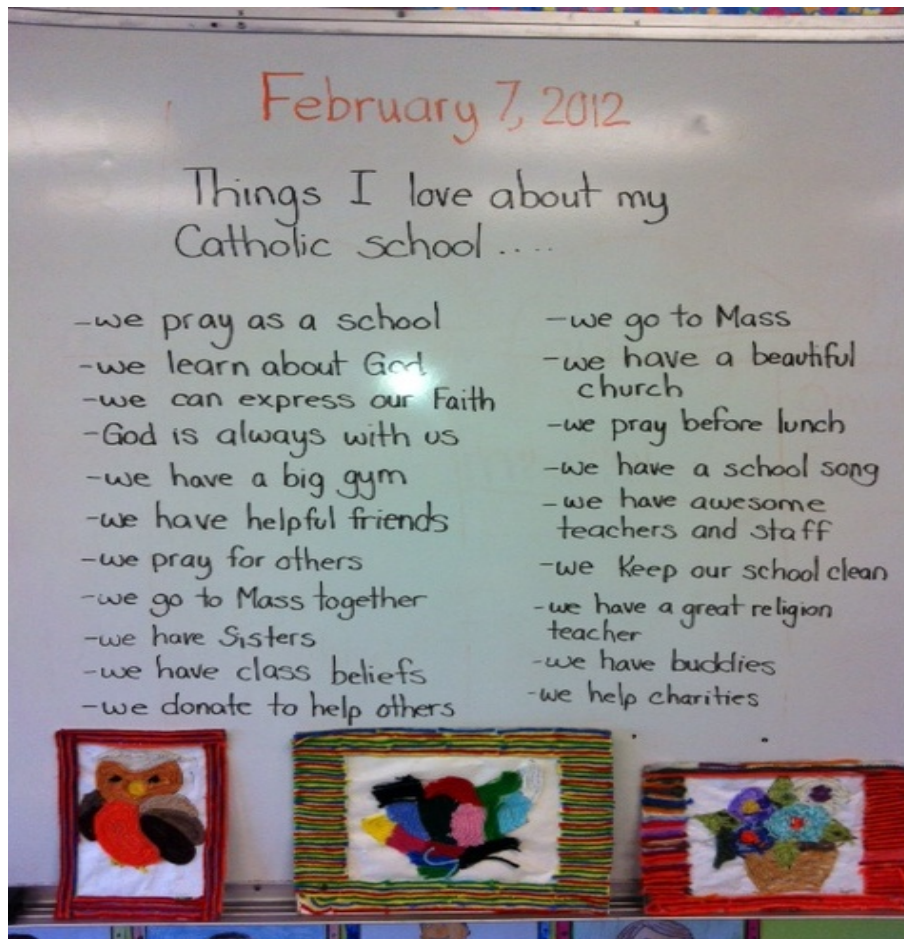 February 7, 2012
Things I love about my
Catholic school.....
-we pray as a school
-we learn about God
-we can express our Faith
-God is always with us
-we have a big gym
-we have helpful friends
-we pray for others
-we go to Mass together
-we have Sisters
-we have class beliefs
-we donate to help others
-we go to Mass
-we have a beautiful
church
-we pray before lunch
-we have a school song
-we have awesome
teachers and staff
-we Keep our school clean
-we have a great religion
teacher
-we have buddies
-we help charities